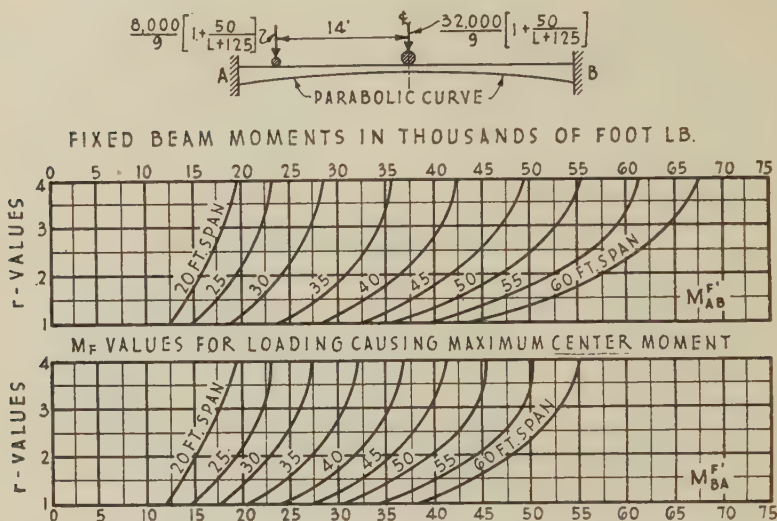 8,000/9 [1+ 50/L+125] 14' ℄ 32,000/9 [1+ 50/L+125]
A B
PARABOLIC CURVE
FIXED BEAM MOMENTS IN THOUSANDS OF FOOT LB.
0 5 10 15 20 25 30 35 40 45 50 55 60 65 70 75
r-VALUES
4
3
2
1
20 FT. SPAN 25 30 35 40 45 50 55 60 FT. SPAN
M AB F'
MF VALUES FOR LOADING CAUSING MAXIMUM CENTER MOMENT
r-VALUES
4
3
2
1
20 FT. SPAN 25 30 35 40 45 50 55 60 FT. SPAN
M BA F'
0 5 10 15 20 25 30 35 40 45 50 55 60 65 70 75